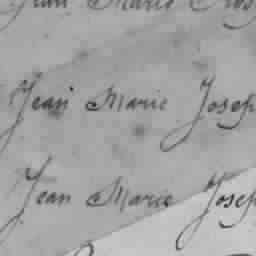 Jean Marie
Jean Marie Josep
Jean Marie Josep